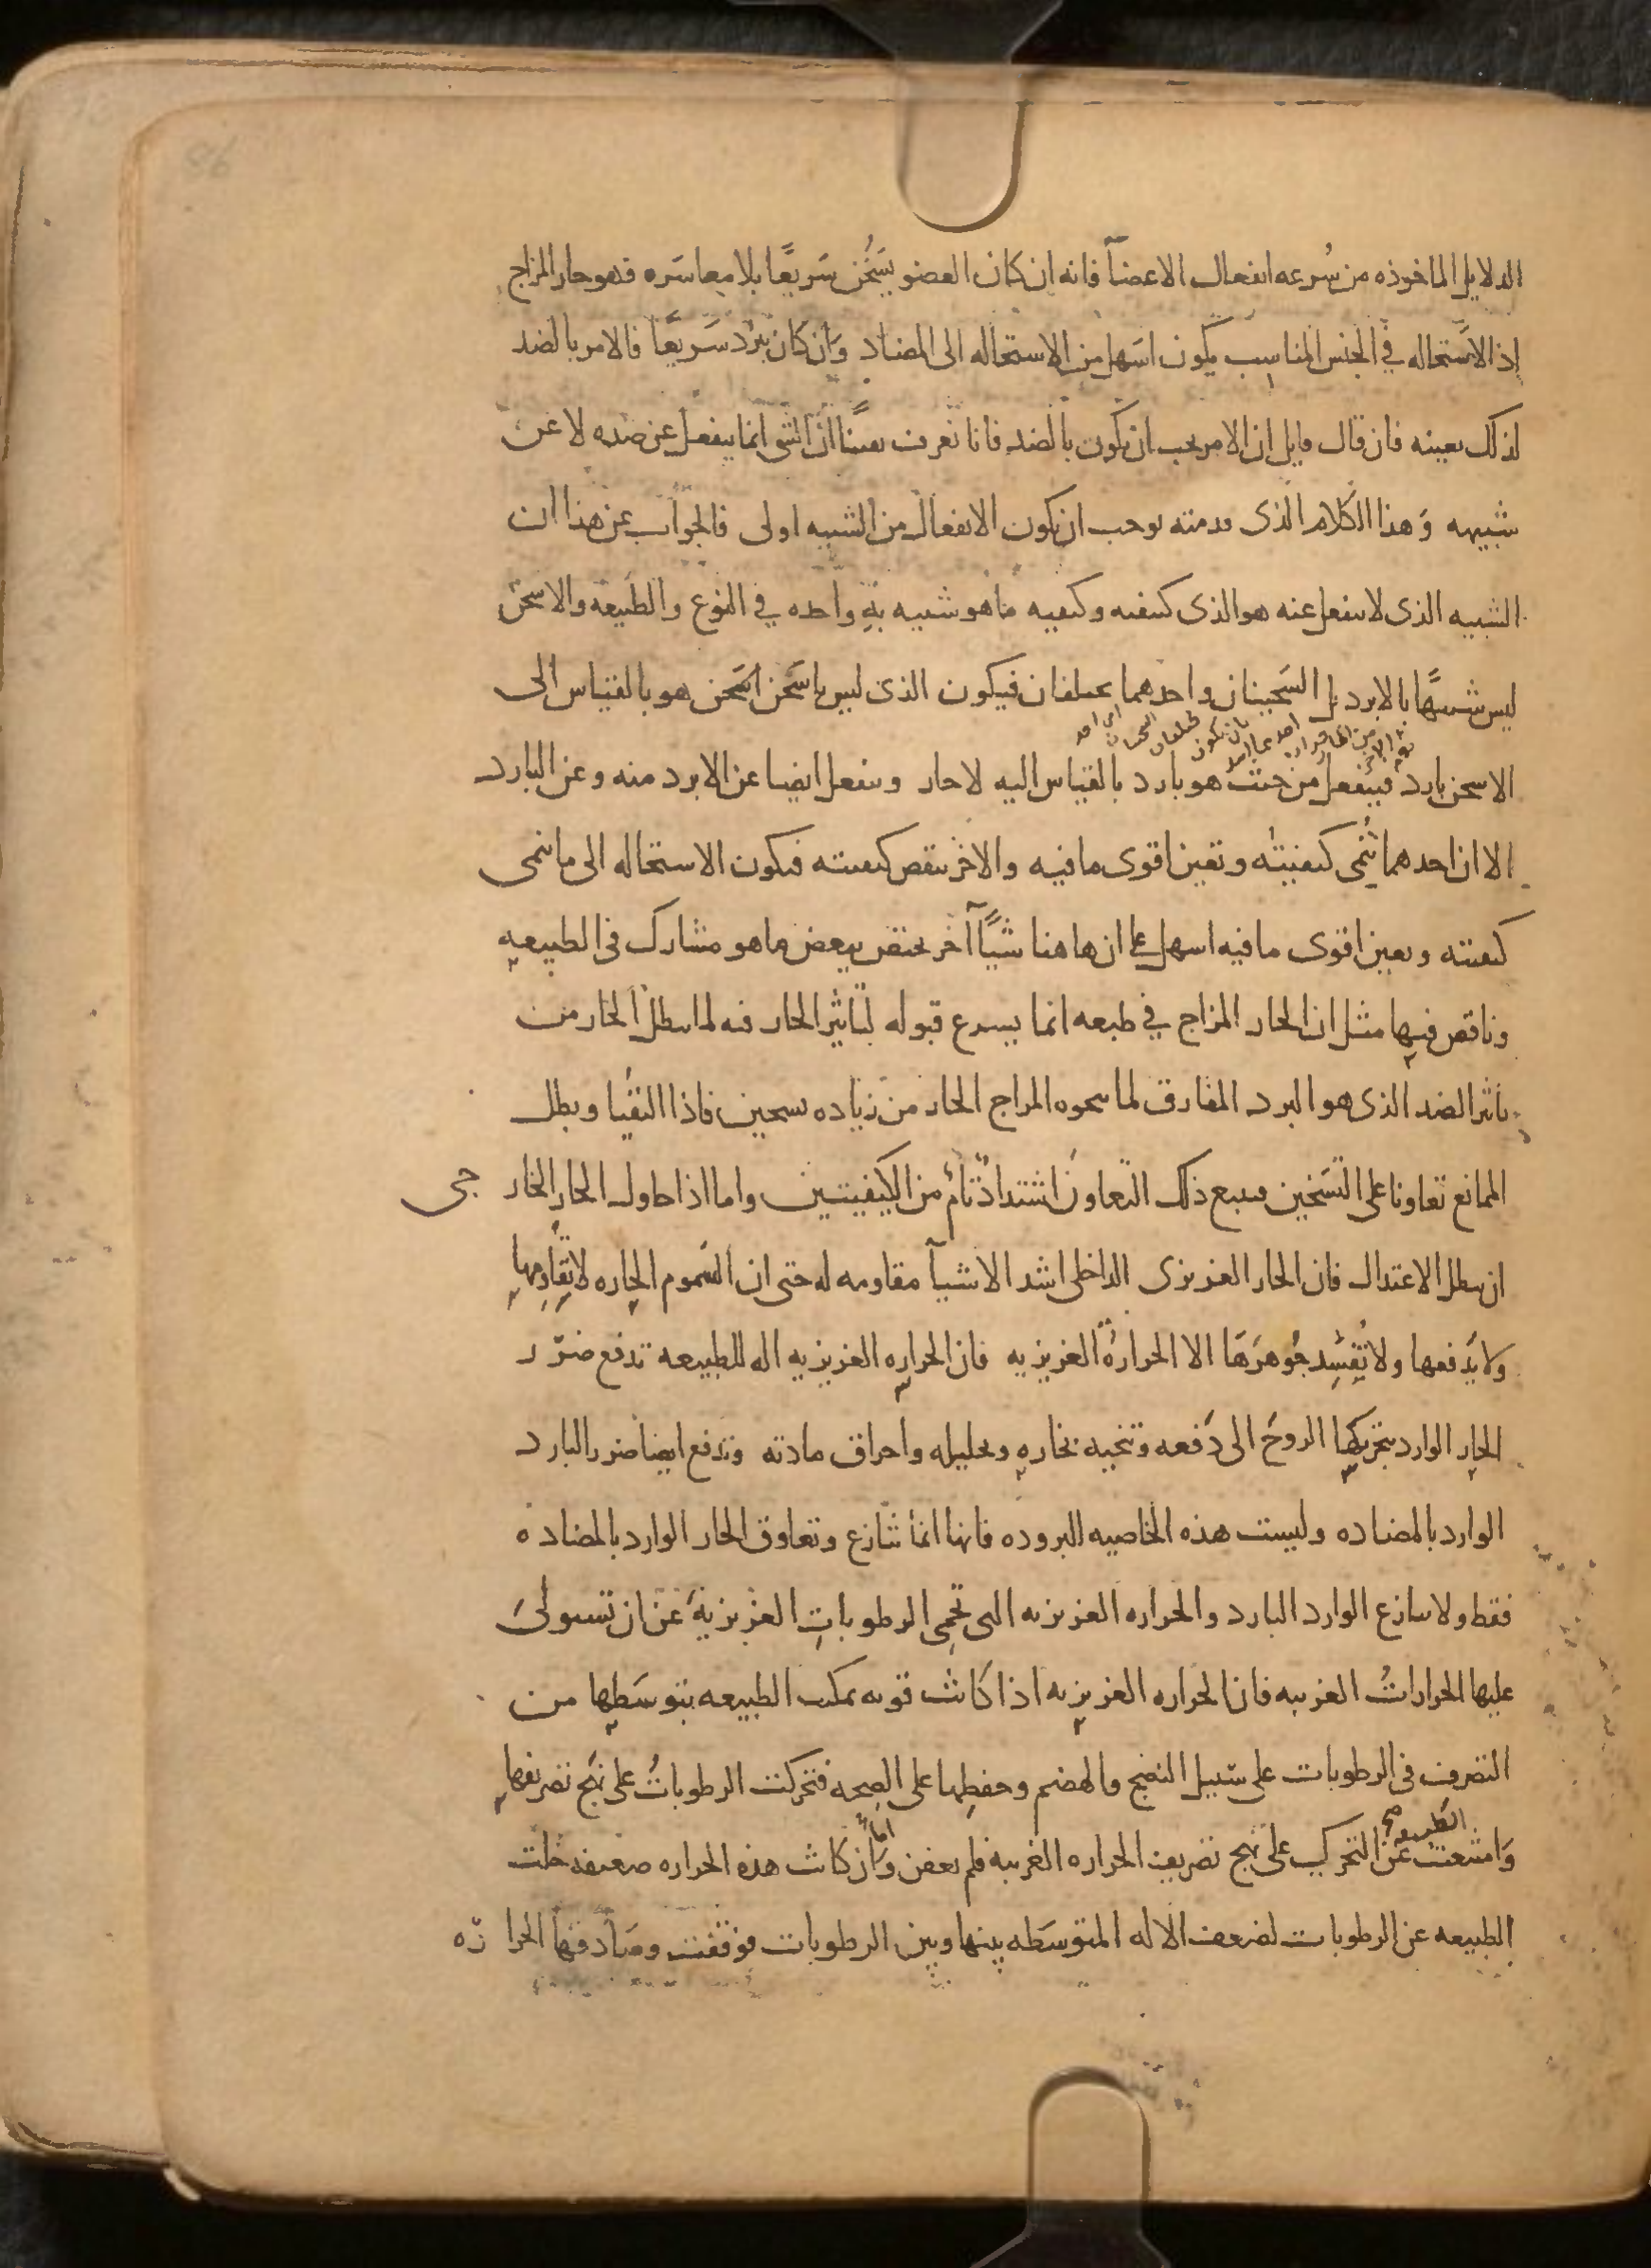 الدلايل الماخوذه من سُرعه انفعال الاعضآ فانه ان كان العضو يسَخُن سَريعًا بلا معاسَره فهو حار المزاج
إذ الاسَتحاله في الجنس المناسِب يكون اسَهل من الاستحاله الى المضاد وَان كان يبرُد سَريعًا فالامر بالضد
لذلك بعينه فان قال قايل ان الامر يجب ان يكون بالضد فانا نعرف يقينًا ان الشى انما ينفعل عن ضده لا عن
شبيهه وَهذا الكلام الذى قدمته يوجب ان يكون الانفعال من الشبيه اولى فالجواب عن هذا ان
الشبيه الذى لا ينفعل عنه هو الذى كيفيته وكيفيه ما هو شبيه به واحده في النوع والطبيعة والاسخن
ليس شبيهًا بالابرد بل السَخينان واحدهما يختلفان فيكون الذى ليس باسَخن اسَخن هو بالقياس الى
الاسخن بارد فينفعل من حيث هو بارد بالقياس اليه لا حار وينفعل ايضا عن الابرد منه وعن البارد
الا ان احدهما يُنمى كيفيته وتعين اقوى ما فيه والاخر ينقص كيفيته فيكون الاستحاله الى ما ينمى
كيفيته ويعين اقوى ما فيه اسهل على ان هاهنا شيًا آخر يختص ببعض ما هو مشارك فى الطبيعه
وناقص فيها مثل ان الحار المزاج في طبعه انما يسرع قبوله لتاثير الحار فيه لما يبطل الحار من
تاثير الضد الذى هو البرد المفارق لما ينحوه المزاج الحار من زياده تسخين فاذا التقيا وبطل
الممانع تعاونا على التسَخين فيتبع ذلك التعاون اشتداد تام من الكيفيتين واما اذا حاول الحار الخارجى
ان يبطل الاعتدال فان الحار الغريزى الداخلى اشد الاشيآ مقاومه له حتى ان السَموم الحاره لا يقاومها
ولا يَدفعها ولا يُفسِد جوهرَهَا الا الحرارة الغريزيه فان الحراره الغريزيه اله للطبيعه تدفع ضرر
الحار الوارد بتحريكها الروح الى دَفعه وتنحيه بخاره وتحليله واحراق مادته وتدفع ايضا ضرر البارد
الوارد بالمضاده وليست هذه الخاصيه للبروده فانها انما تنازع وتعاوق الحار الوارد بالمضاده
فقط ولا تنازع الوارد البارد والحراره الغريزيه التى تحمِى الرطوباتِ الغريزيةَ عن ان تستولىَ
عليها الحراراتُ الغريبه فان الحراره الغريزيه اذا كانت قويه تمكنت الطبيعه بتوسَطها من
التصرف فى الرطوبات على سَبيل النضج والهضم وحفظها على الصحه فتحركت الرطوباتُ على نهج تصريفها
وَامتنعت عن التحرك على نهج تصريف الحراره الغريبه فلم يعفن وَاما ان كانت هذه الحراره ضعيفه خلت
الطبيعه عن الرطوبات لضعف الاله المتوسَطه بينها وبين الرطوبات فوقفت وصَادفتها الحراره